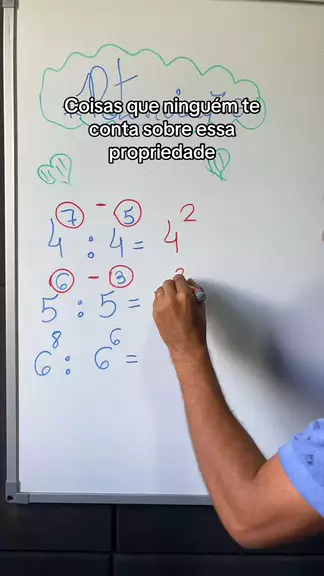 Coisas que ninguém te
conta sobre essa
propriedade
4⁷ : 4⁵ = 4²
5⁶ : 5³ =
6⁸ : 6⁶ =